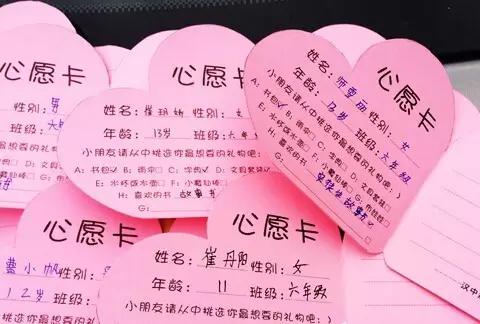 心愿卡
性别：男
班级：六
心愿卡
姓名：崔玥 性别：女
年龄：13岁 班级：六年级
小朋友请从中挑选你最想要的礼物吧：）
A：书包✓ B：雨伞□ C：字典✓ D：文具套装□
E：水杯或水壶□ F：小戴仙棒□
H：喜欢的书 故事书
G：
心愿卡
姓名：师雪丽 性别：女
年龄：12岁 班级：六年级
小朋友请从中挑选你最想要的礼物吧：）
A：书包✓ B：雨伞□ C：字典□ D：文具套装□
E：水杯或水壶□ F：小戴仙棒□ G：布娃娃□
H：喜欢的书
心愿卡
费小帆 性别：
12岁 班级：
心愿卡
姓名：崔丹阳 性别：女
年龄：11 班级：六年级
小朋友请从中挑选你最想要的礼物吧：）
汉中